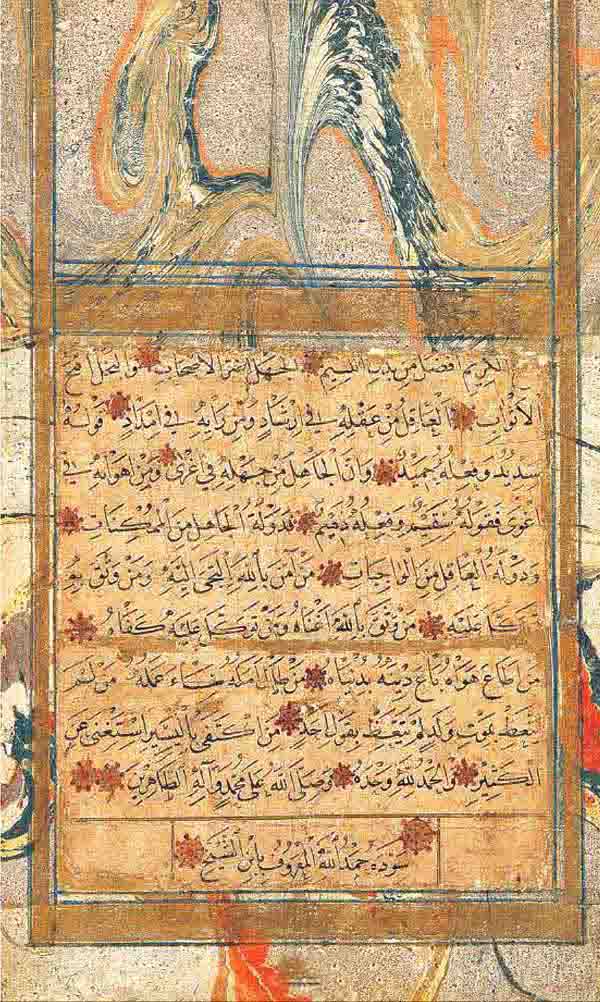 الكريم افضل من بذل اللئيم الجهل اضر الاصحاب
الابواب العاقل من عقله في ارشاد ومن رايه في امداد فقوله
سديد وفعله حميد وان الجاهل من جهله في اغرى ومن اهوائه في
اغوى فقوله سقيم وفعله ذميم فدولة الجاهل من الممكنات
ودولة العاقل من الواجبات من آمن بالله التجى اليه ومن وثق به
توكل عليه من وثق بالله اغناه ومن توكل عليه كفاه
من اطاع هواه باع دينه بدنياه من طال امله ساء عمله من لم
يتعظ بموت ولد لم يتعظ بقول احد من اكتفى باليسير استغنى عن
الكثير والحمد لله وحده وصلى الله على محمد وآله الطاهرين
سوده حمد الله المعروف بابن الشيخ